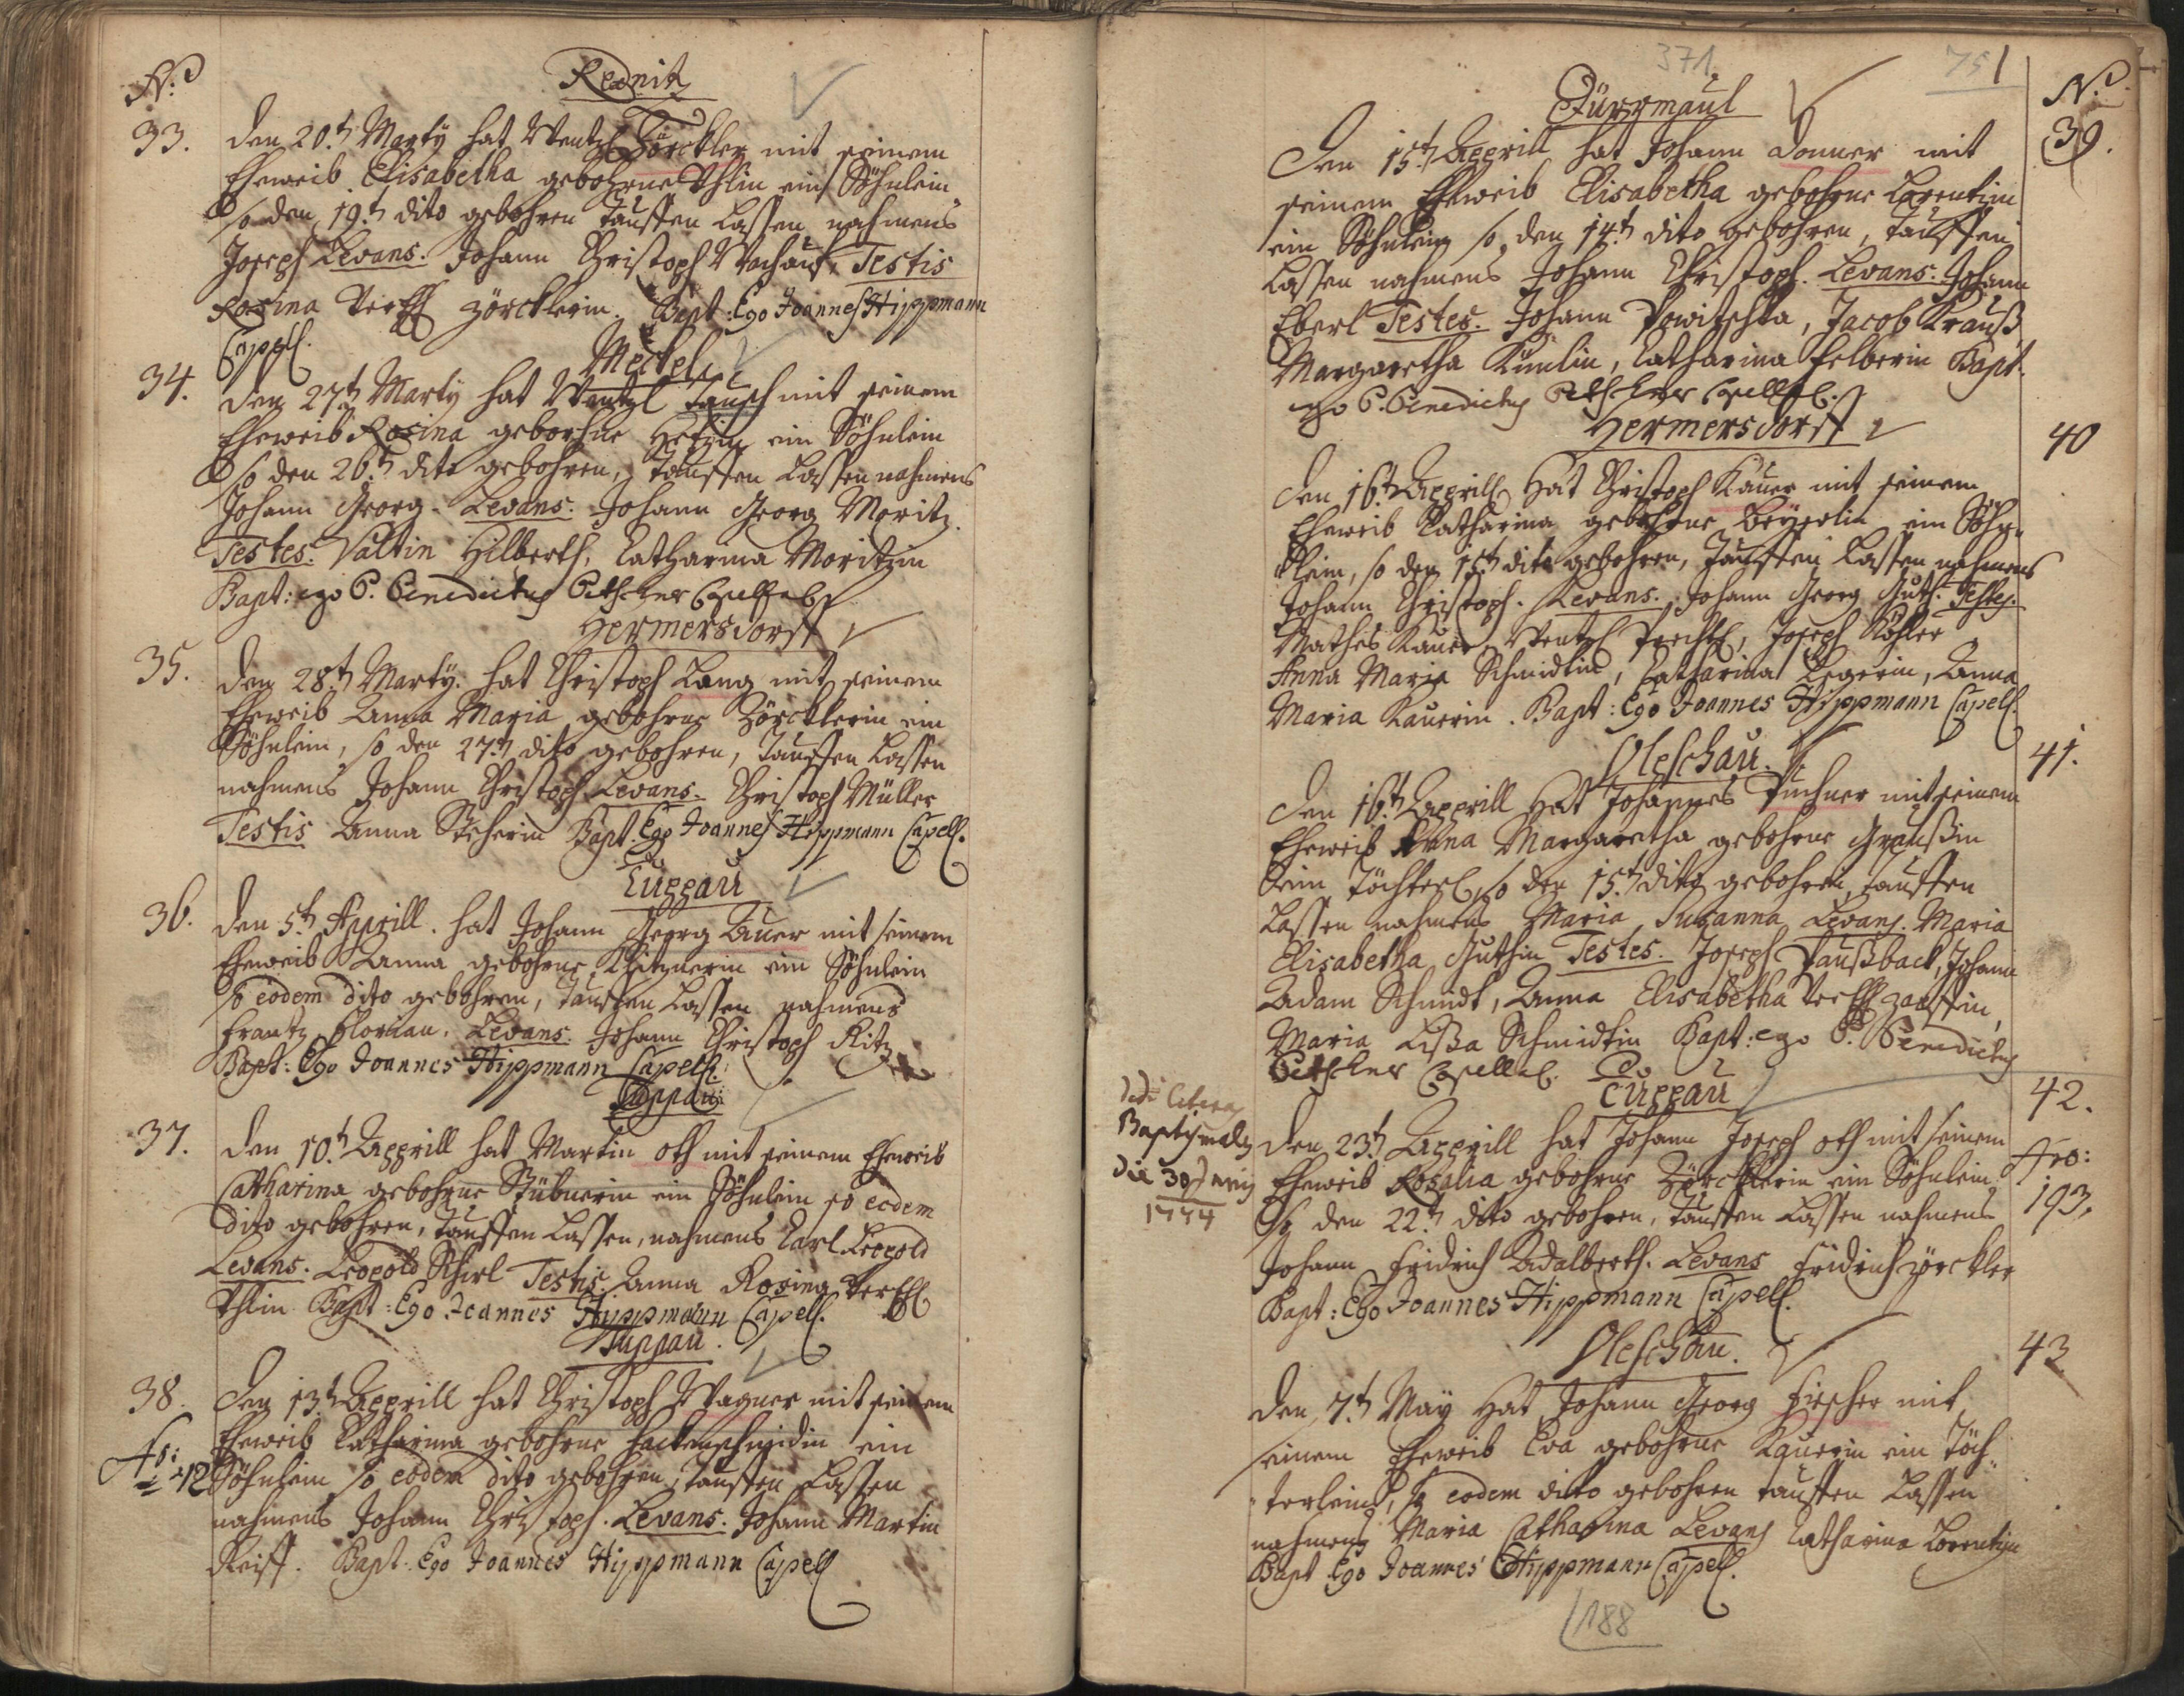 No.
Rednitz
33.
den 20.t Marty hat Wentzl Zörckler mit seinem
Eheweib Elisabetha gebohrne Ihlin ein Söhnlein
so den 19.t dito gebohren tauffen Lassen nahmens
Joseph Levans. Johann Christoph Testis
Rosina Zörcklerin. Bapt: Ego Joannes Hippmann
Capell.
Meckel
34.
den 27.t Marty hat Wentzl Tausch mit seinem
Eheweib Rosina gebohrne ein Söhnlein
so den 26.t dito gebohren, Tauffen Lassen nahmens
Johann Georg. Levans. Johann Georg Moritz.
Testes. Valtin Hilberth, Catharina Moritzin
Bapt: ego P. Benedictus
Hermersdorff
35.
den 28.t Marty. hat Christoph Lang mit seinem
Eheweib Anna Maria gebohrne Zörcklerin ein
Söhnlein, so den 27.t dito gebohren, tauffen Lassen
nahmens Johann Christoph Levans. Christoph Müller
Testis Anna Bapt Ego Joannes Hippmann Capell.
Tuppau
36.
den 5.t Apprill. hat Johann Georg Auer mit seinem
Eheweib Anna gebohrne ein Söhnlein
so eodem dito gebohren, tauffen Lassen nahmens
Frantz Florian. Levans. Johann Christoph Ritz
Bapt: Ego Joannes Hippmann Capell.
Tuppau
37.
den 10.t Apprill hat Martin Oth mit seinem Eheweib
Catharina gebohrne Stübnerin ein Söhnlein so eodem
dito gebohren, tauffen Lassen, nahmens Carl Leopold
Levans. Leopold Schirl Testis. Anna Rosina
Ihlin Bapt: Ego Joannes Hippmann Capell.
Tuppau.
38.
den 13.t Apprill hat Christoph Wagner mit seinem
Eheweib Catharina gebohrne Hackenschmidin ein
Söhnlein so eodem dito gebohren, tauffen Lassen
nahmens Johann Christoph. Levans. Johann Martin
Reiff. Bapt. Ego Joannes Hippmann Capell
371
751
No.
Dürrmaul
39.
den 15.t Apprill hat Johann Donner mit
seinem Eheweib Elisabetha gebohrne Lorentzin
ein Söhnlein so den 14.t dito gebohren, tauffen
Lassen nahmens Johann Christoph. Levans. Johann
Eberl Testes. Johann Powitschka, Jacob Krauß
Margaretha Kunlin, Catharina Felberin Bapt.
ego P. Benedictus
Hermersdorff
40
den 16.t Apprill Hat Christoph Kauer mit seinem
Eheweib Catharina gebohrne Beyerlin ein Söhn-
lein, so den 15.t dito gebohren, Tauffen Lassen nahmens
Johann Christoph. Levans. Johann Georg Guth. Testes.
Mathes Kauer, Wentzl, Joseph Köhler
Anna Maria Schmidtin, Catharina Legerin, Anna
Maria Kauerin. Bapt: Ego Joannes Hippmann Capell.
Oleschau.
41.
den 16.t Apprill Hat Johannes Puchner mit seinem
Eheweib Anna Margaretha gebohrne Graußin
ein Töchterl, so den 15.t dito gebohren, tauffen
Lassen nahmens Maria Susanna Levans. Maria
Elisabetha Guthin Testes. Joseph Paußback, Johann
Adam Schmidt, Anna Elisabetha
Maria Lißa Schmidtin Bapt: ego P. Benedictus
Tuppau
42.
den 23.t Apprill hat Johann Joseph Oth mit seinem
Eheweib Rosalia gebohrne Zörcklerin ein Söhnlein
so den 22.t dito gebohren, tauffen Lassen nahmens
Johann Fridrich Adalberth. Levans Fridrich Zörckler
Bapt: Ego Joannes Hippmann Capell.
193.
Oleschau.
43
den 7.t May Hat Johann Georg Fischer mit
seinem Eheweib Eva gebohrne Kauerin ein Töch-
terlein, so eodem dito gebohren tauffen Lassen
nahmens Maria Catharina Levans Catharina Lorentzin
Bapt Ego Joannes Hippmann Capell.
188